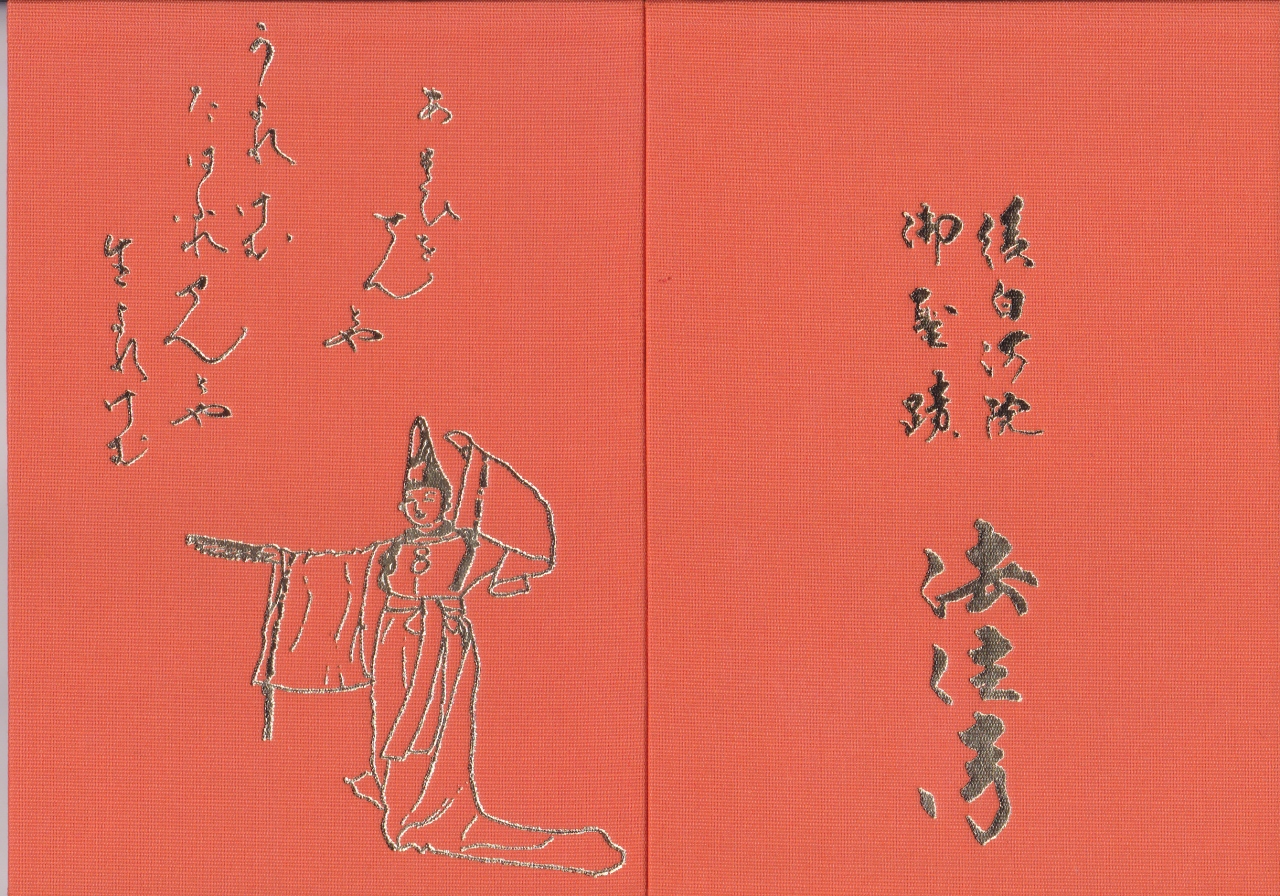 後白河院
御聖蹟
法住寺
あそひを
せんとや
うまれけむ
たはふれせんとや
生まれけむ